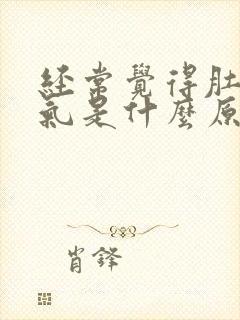 經常覺得肚
氣是什麼原
肖鋒